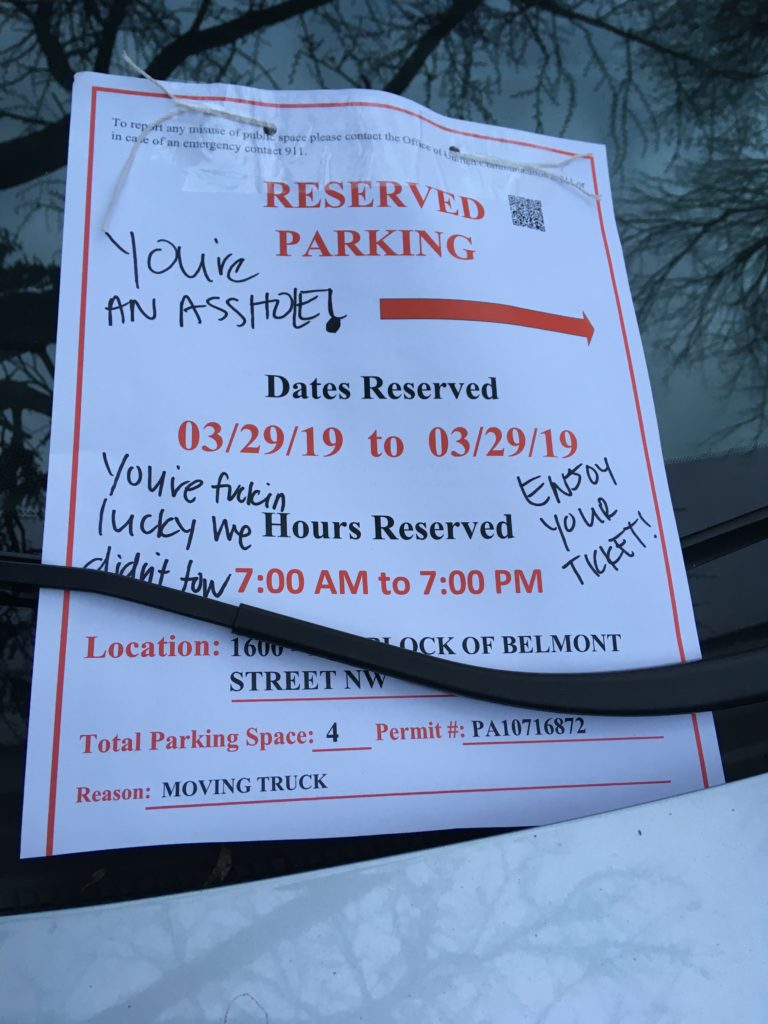 To report any misuse of public space please contact the Office of Unified Communication at 311 or
in case of an emergency contact 911.
RESERVED
PARKING
You're
AN ASSHOLE!
Dates Reserved
03/29/19 to 03/29/19
You're fuckin
lucky we
didn't tow
ENJOY
YOUR
TICKET!
Hours Reserved
7:00 AM to 7:00 PM
Location: 1600 BLOCK OF BELMONT
STREET NW
Total Parking Space: 4 Permit #: PA10716872
Reason: MOVING TRUCK